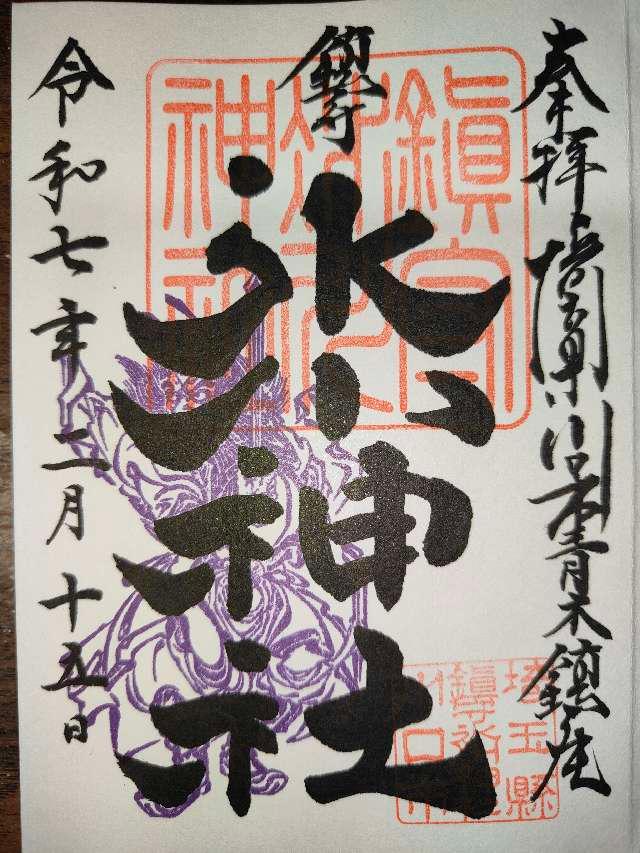 奉拝 埼玉県川口市青木鎮座
鎮守
氷川神社
令和七年二月十五日
鎮守氷川神社
埼玉縣川口市鎮守氷川神社